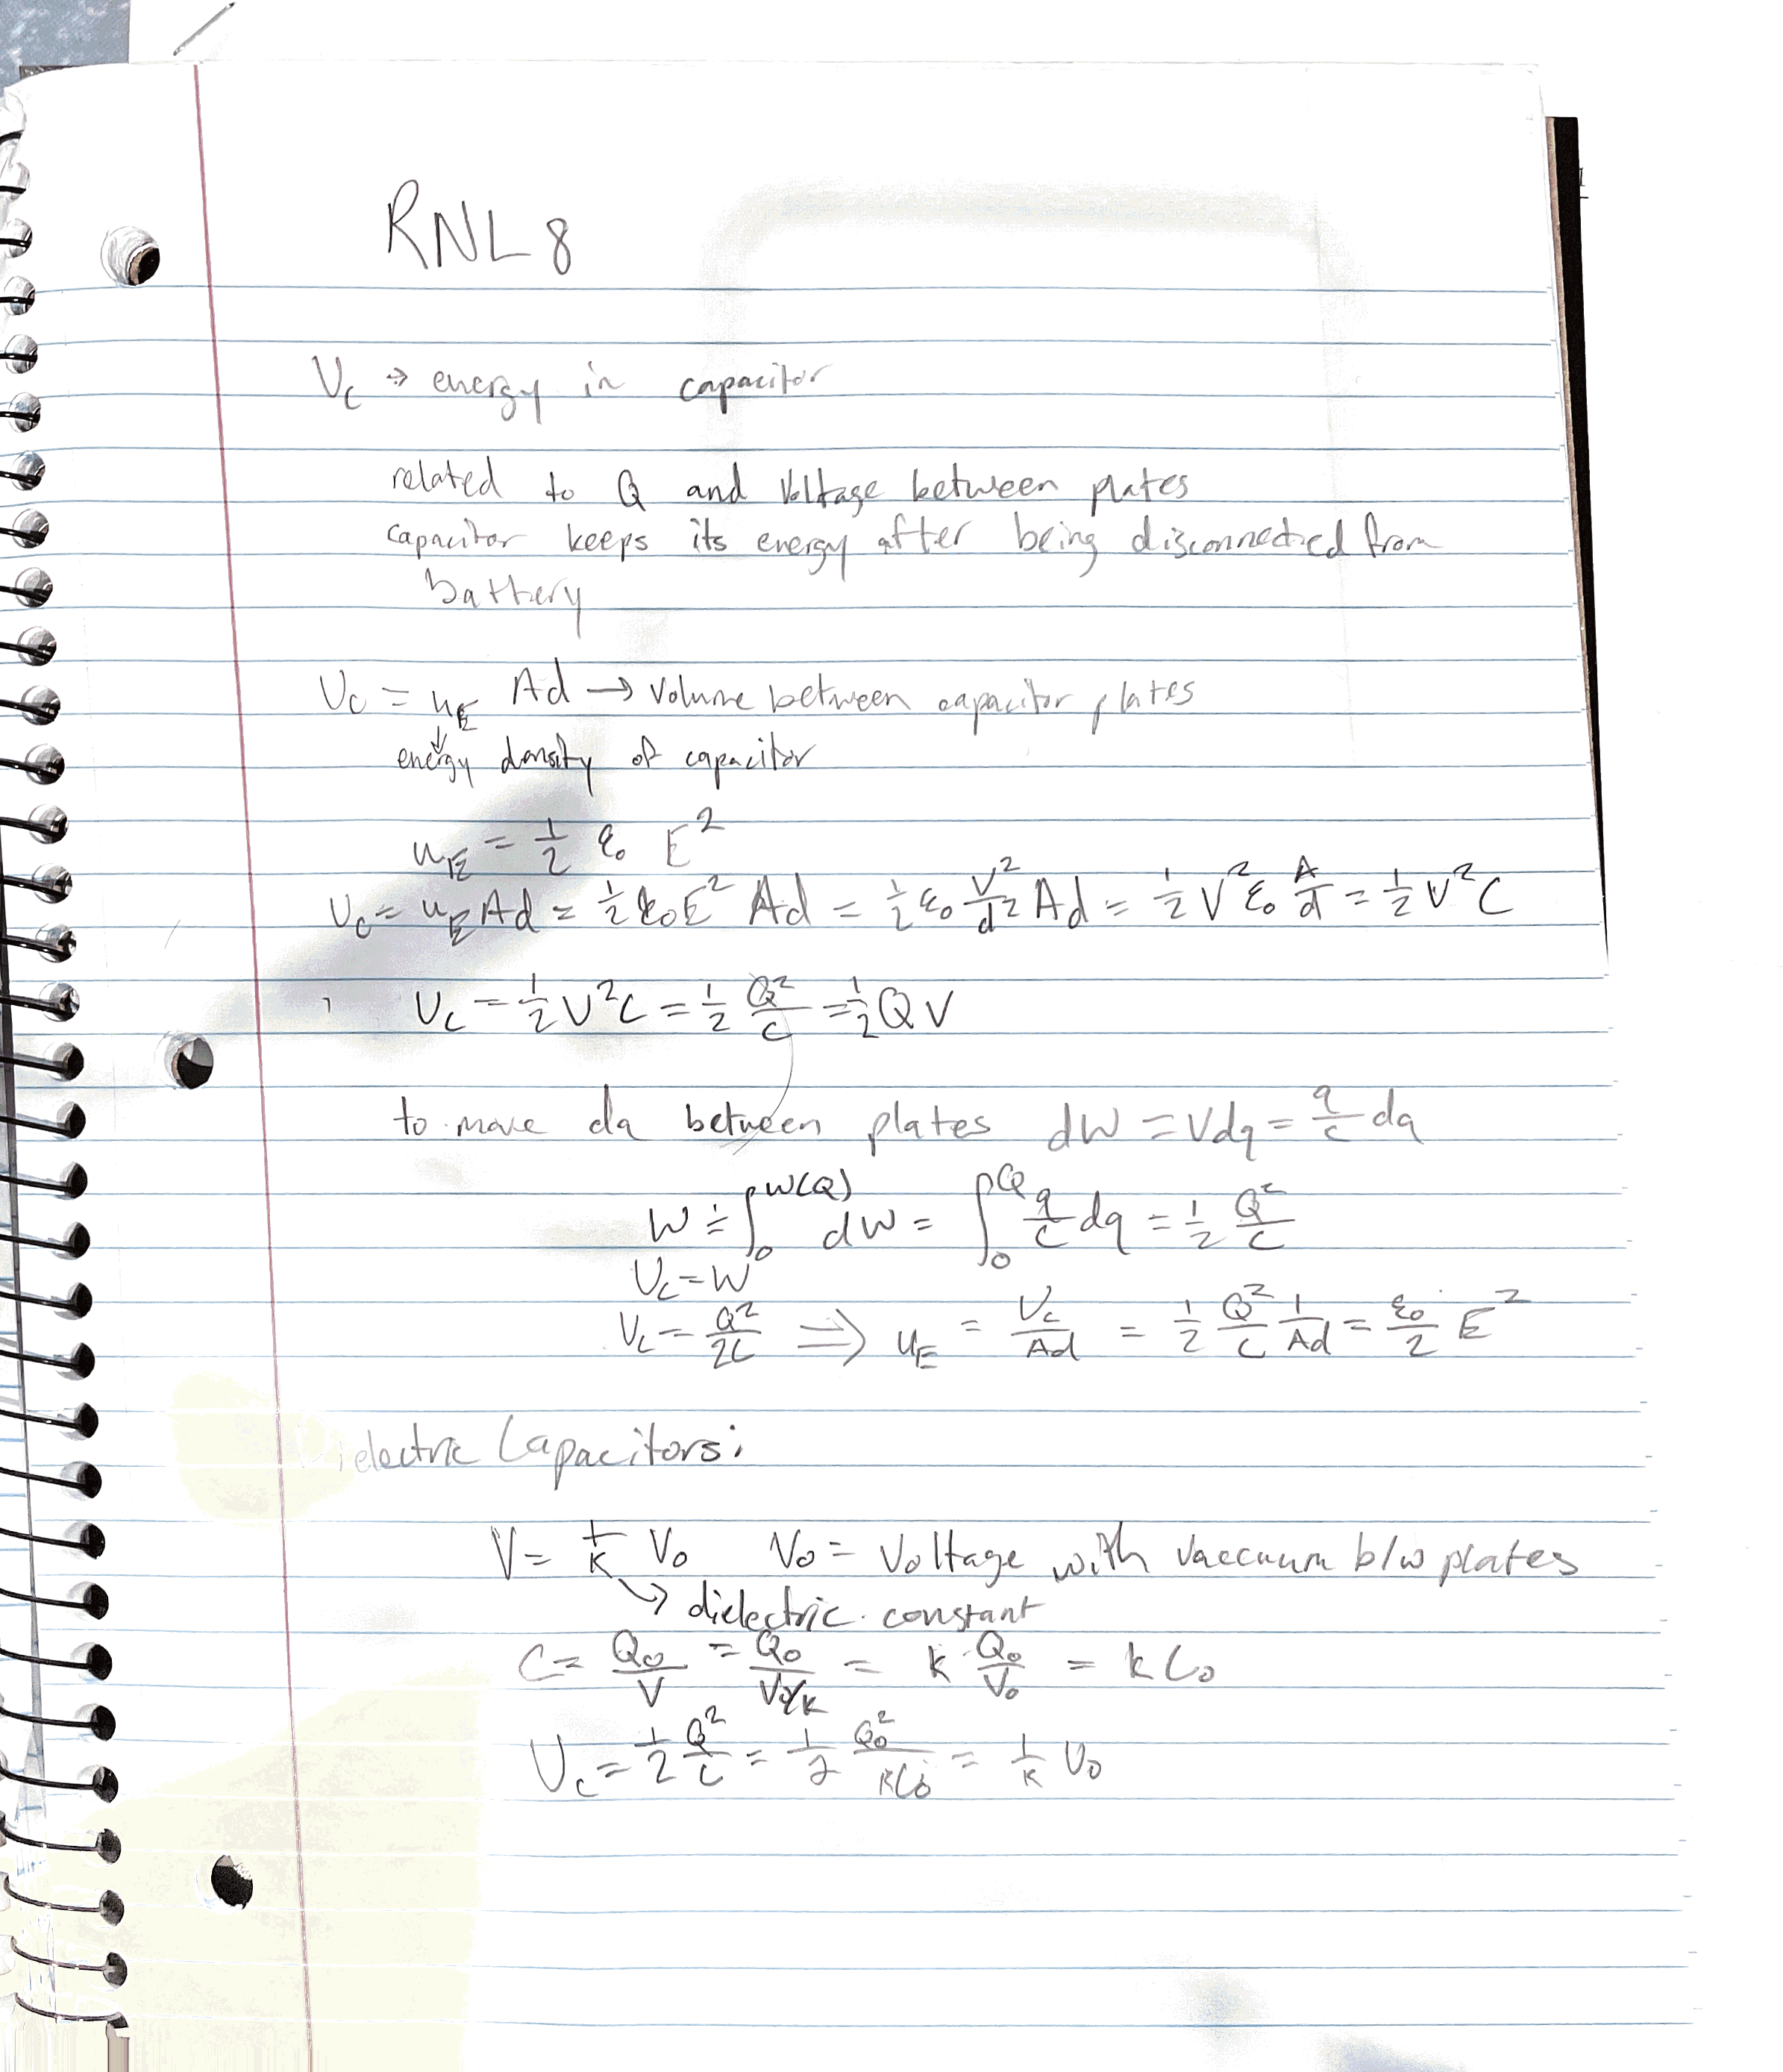 RNL 8
U_C → energy in capacitor
related to Q and Voltage between plates
capacitor keeps its energy after being disconnected from
battery
U_C = u_E Ad → Volume between capacitor plates
↓
energy density of capacitor
u_E = 1/2 ε₀ E²
U_C = u_E Ad = 1/2 ε₀E² Ad = 1/2 ε₀ V²/d² Ad = 1/2 V² ε₀ A/d = 1/2 V² C
U_C = 1/2 V²C = 1/2 Q²/C = 1/2 QV
to move dq between plates dW = Vdq = q/c dq
W = ∫₀^W(Q) dW = ∫₀^Q q/c dq = 1/2 Q²/C
U_C = W
U_C = Q²/2C ⇒ u_E = U_C/Ad = 1/2 Q²/C 1/Ad = ε₀/2 E²
Dielectric Capacitors:
V = 1/K V₀ V₀ = Voltage with vaccuum b/w plates
↘ dielectric constant
C = Q₀/V = Q₀/V₀/K = k Q₀/V₀ = k C₀
U_C = 1/2 Q²/C = 1/2 Q₀²/kC₀ = 1/K U₀